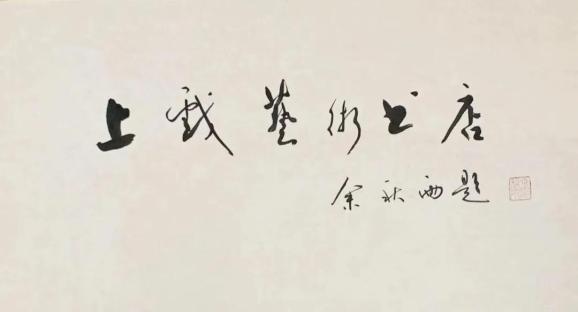 上戲藝術书店
余秋雨題